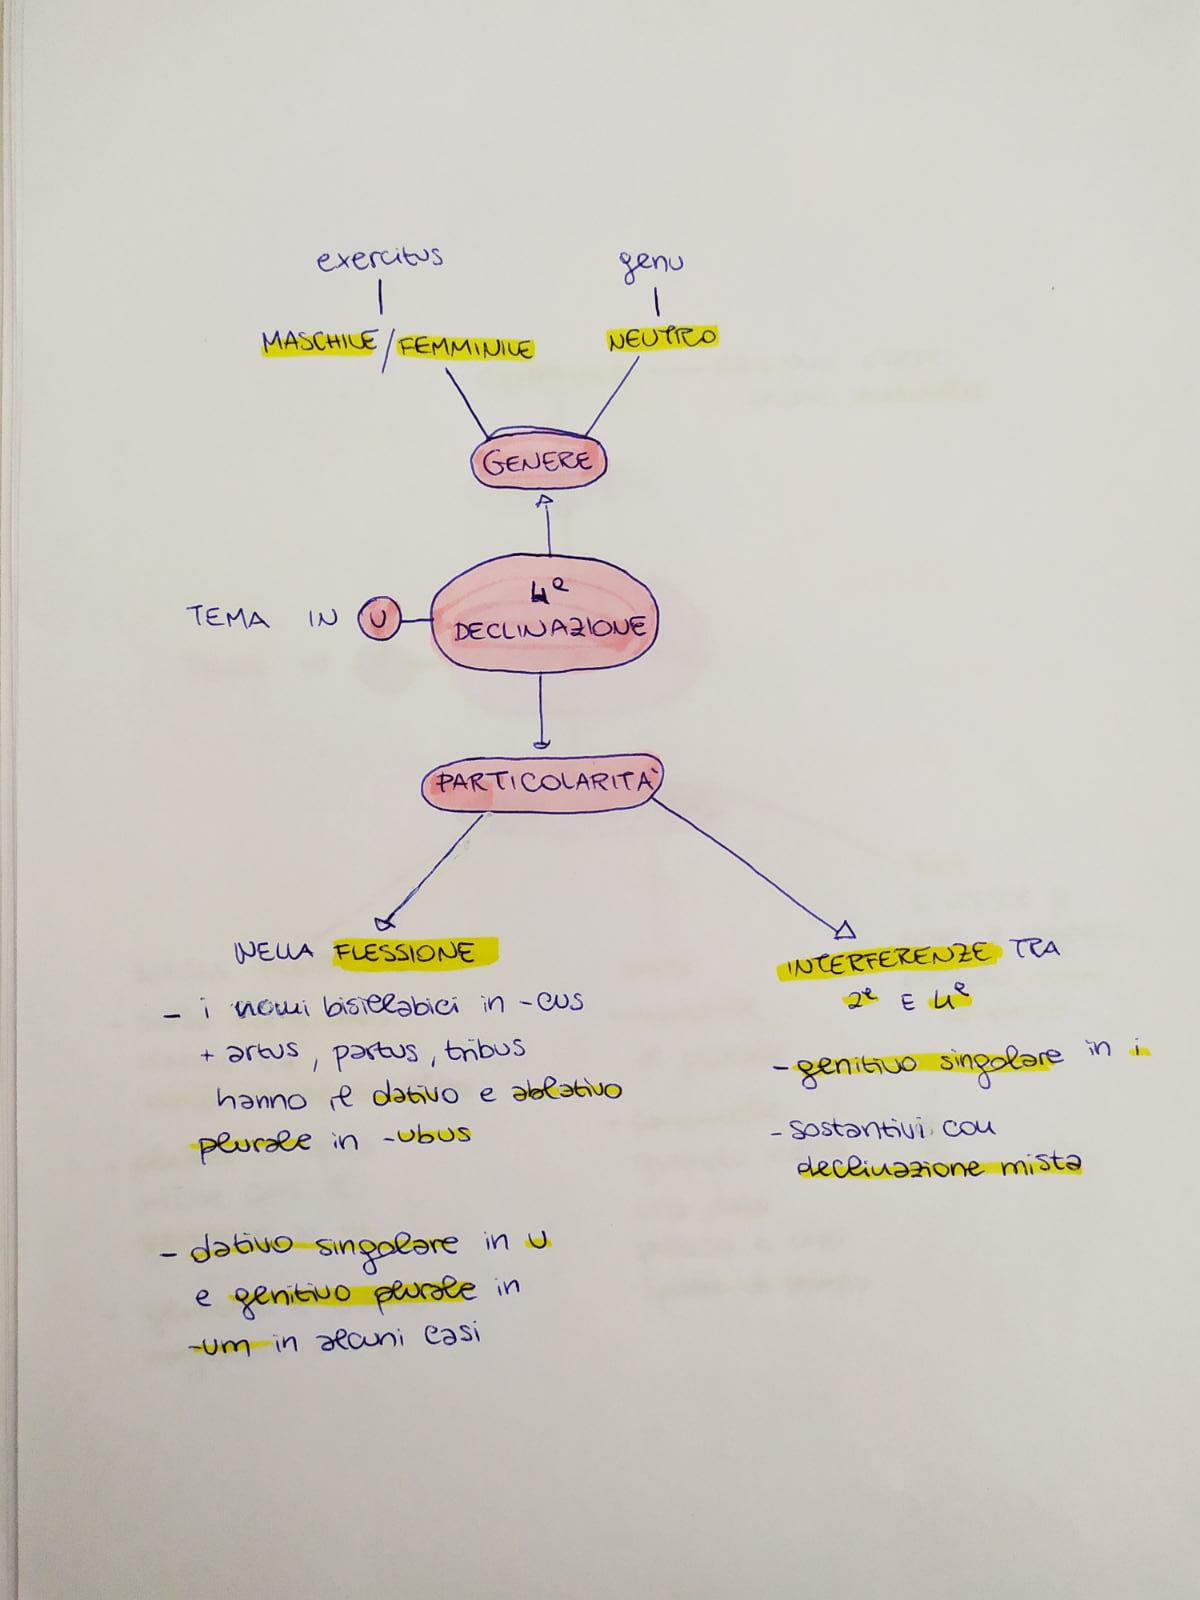 exercitus
genu
MASCHILE / FEMMINILE
NEUTRO
GENERE
4ª
DECLINAZIONE
TEMA IN U
PARTICOLARITÀ
NELLA FLESSIONE
- i nomi bisillabici in -cus
+ artus, partus, tribus
hanno il dativo e ablativo
plurale in -ubus
- dativo singolare in u
e genitivo plurale in
-um in alcuni casi
INTERFERENZE TRA
2ª E 4ª
- genitivo singolare in i
- sostantivi con
declinazione mista